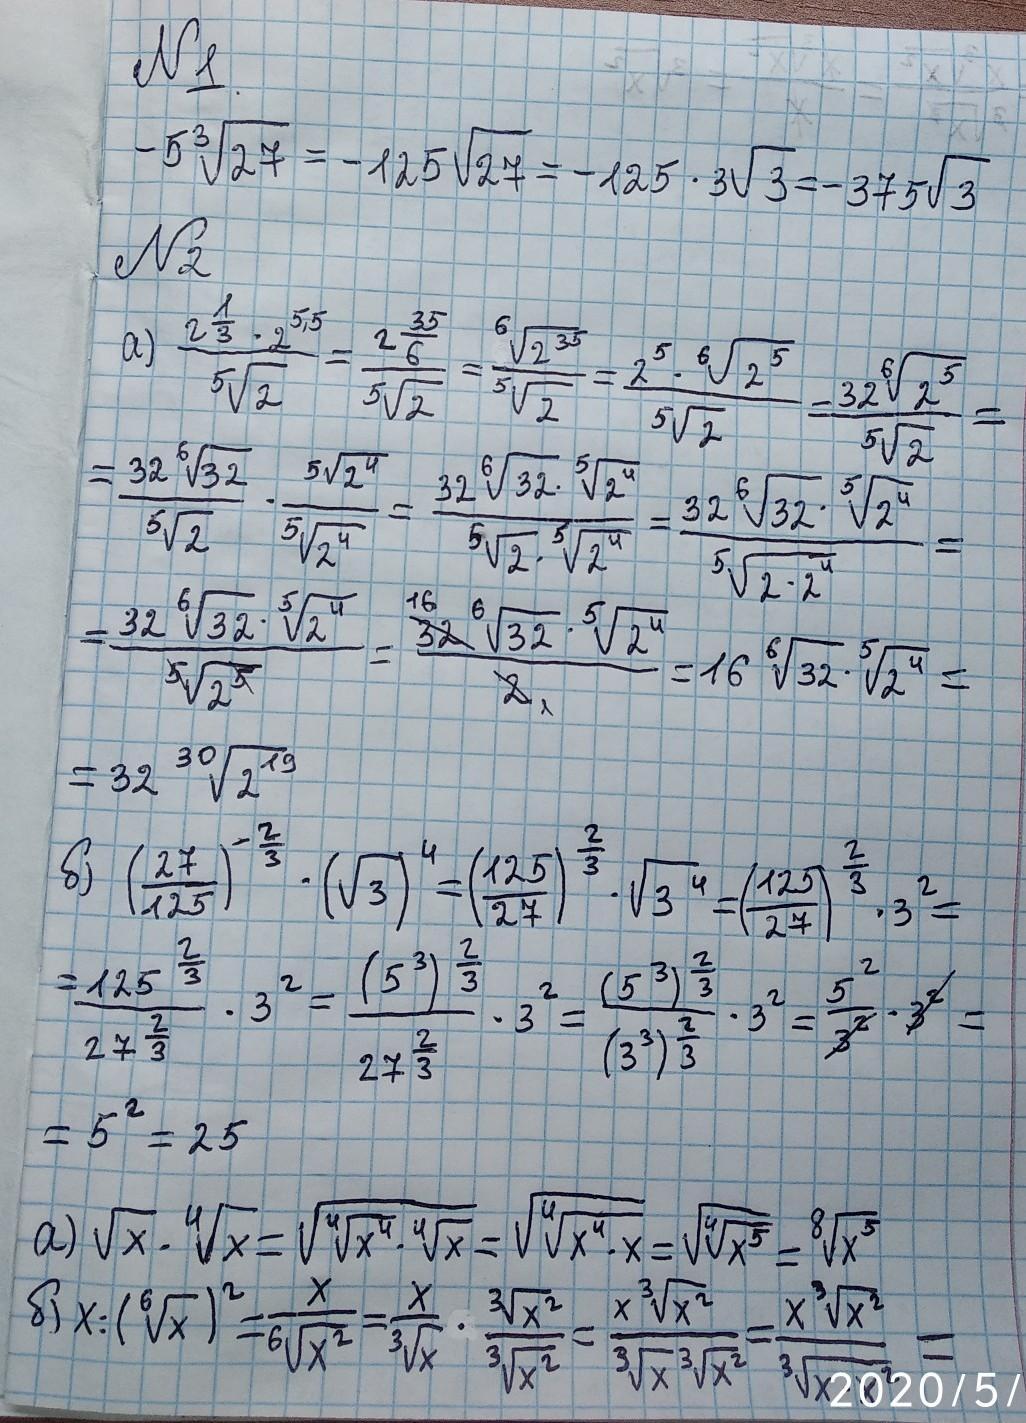 №1.
-5∛27 = -125√27 = -125·3√3 = -375√3
№2
а) (2^(1/3) · 2^(5,5))/(⁵√2) = (2^(35/6))/(⁵√2) = (⁶√(2^35))/(⁵√2) = (2^5 · ⁶√(2^5))/(⁵√2) = (32 ⁶√(2^5))/(⁵√2) =
= (32 ⁶√32)/(⁵√2) · (⁵√(2^4))/(⁵√(2^4)) = (32 ⁶√32 · ⁵√(2^4))/(⁵√2 · ⁵√(2^4)) = (32 ⁶√32 · ⁵√(2^4))/(⁵√(2·2^4)) =
= (32 ⁶√32 · ⁵√(2^4))/(⁵√(2^5)) = (32 16 ⁶√32 · ⁵√(2^4))/(2 1) = 16 ⁶√32 · ⁵√(2^4) =
= 32 ³⁰√(2^19)
б) (27/125)^(-2/3) · (√3)^4 = (125/27)^(2/3) · √(3^4) = (125/27)^(2/3) · 3^2 =
= (125^(2/3))/(27^(2/3)) · 3^2 = ((5^3)^(2/3))/(27^(2/3)) · 3^2 = ((5^3)^(2/3))/((3^3)^(2/3)) · 3^2 = (5^2)/(3^2) · 3^2 =
= 5^2 = 25
а) √x · ⁴√x = √(⁴√(x^4) · ⁴√x) = √(⁴√(x^4 · x)) = √(⁴√(x^5)) = ⁸√(x^5)
б) x : (⁶√x)^2 = x/(⁶√(x^2)) = x/(∛x) · (∛(x^2))/(∛(x^2)) = (x∛(x^2))/(∛x ∛(x^2)) = (x∛(x^2))/(∛(x · x^2)) =
2020/5/